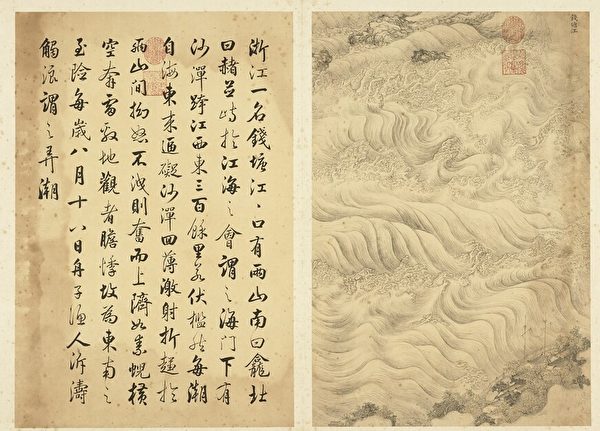 錢塘江
浙江一名錢塘江、口有兩山南曰龕北
曰赭並峙於江海之會謂之海門下有
沙潬跨江西東三百餘里若伏檻然每潮
自海東來逼礙沙潬回薄激射折趨於
兩山間拗怒不洩則奮而上隮如素蜺橫
空奔雷殷地觀者膽悸故為東南之
至險每歲八月十八日舟子漁人泝濤
觸浪謂之弄潮